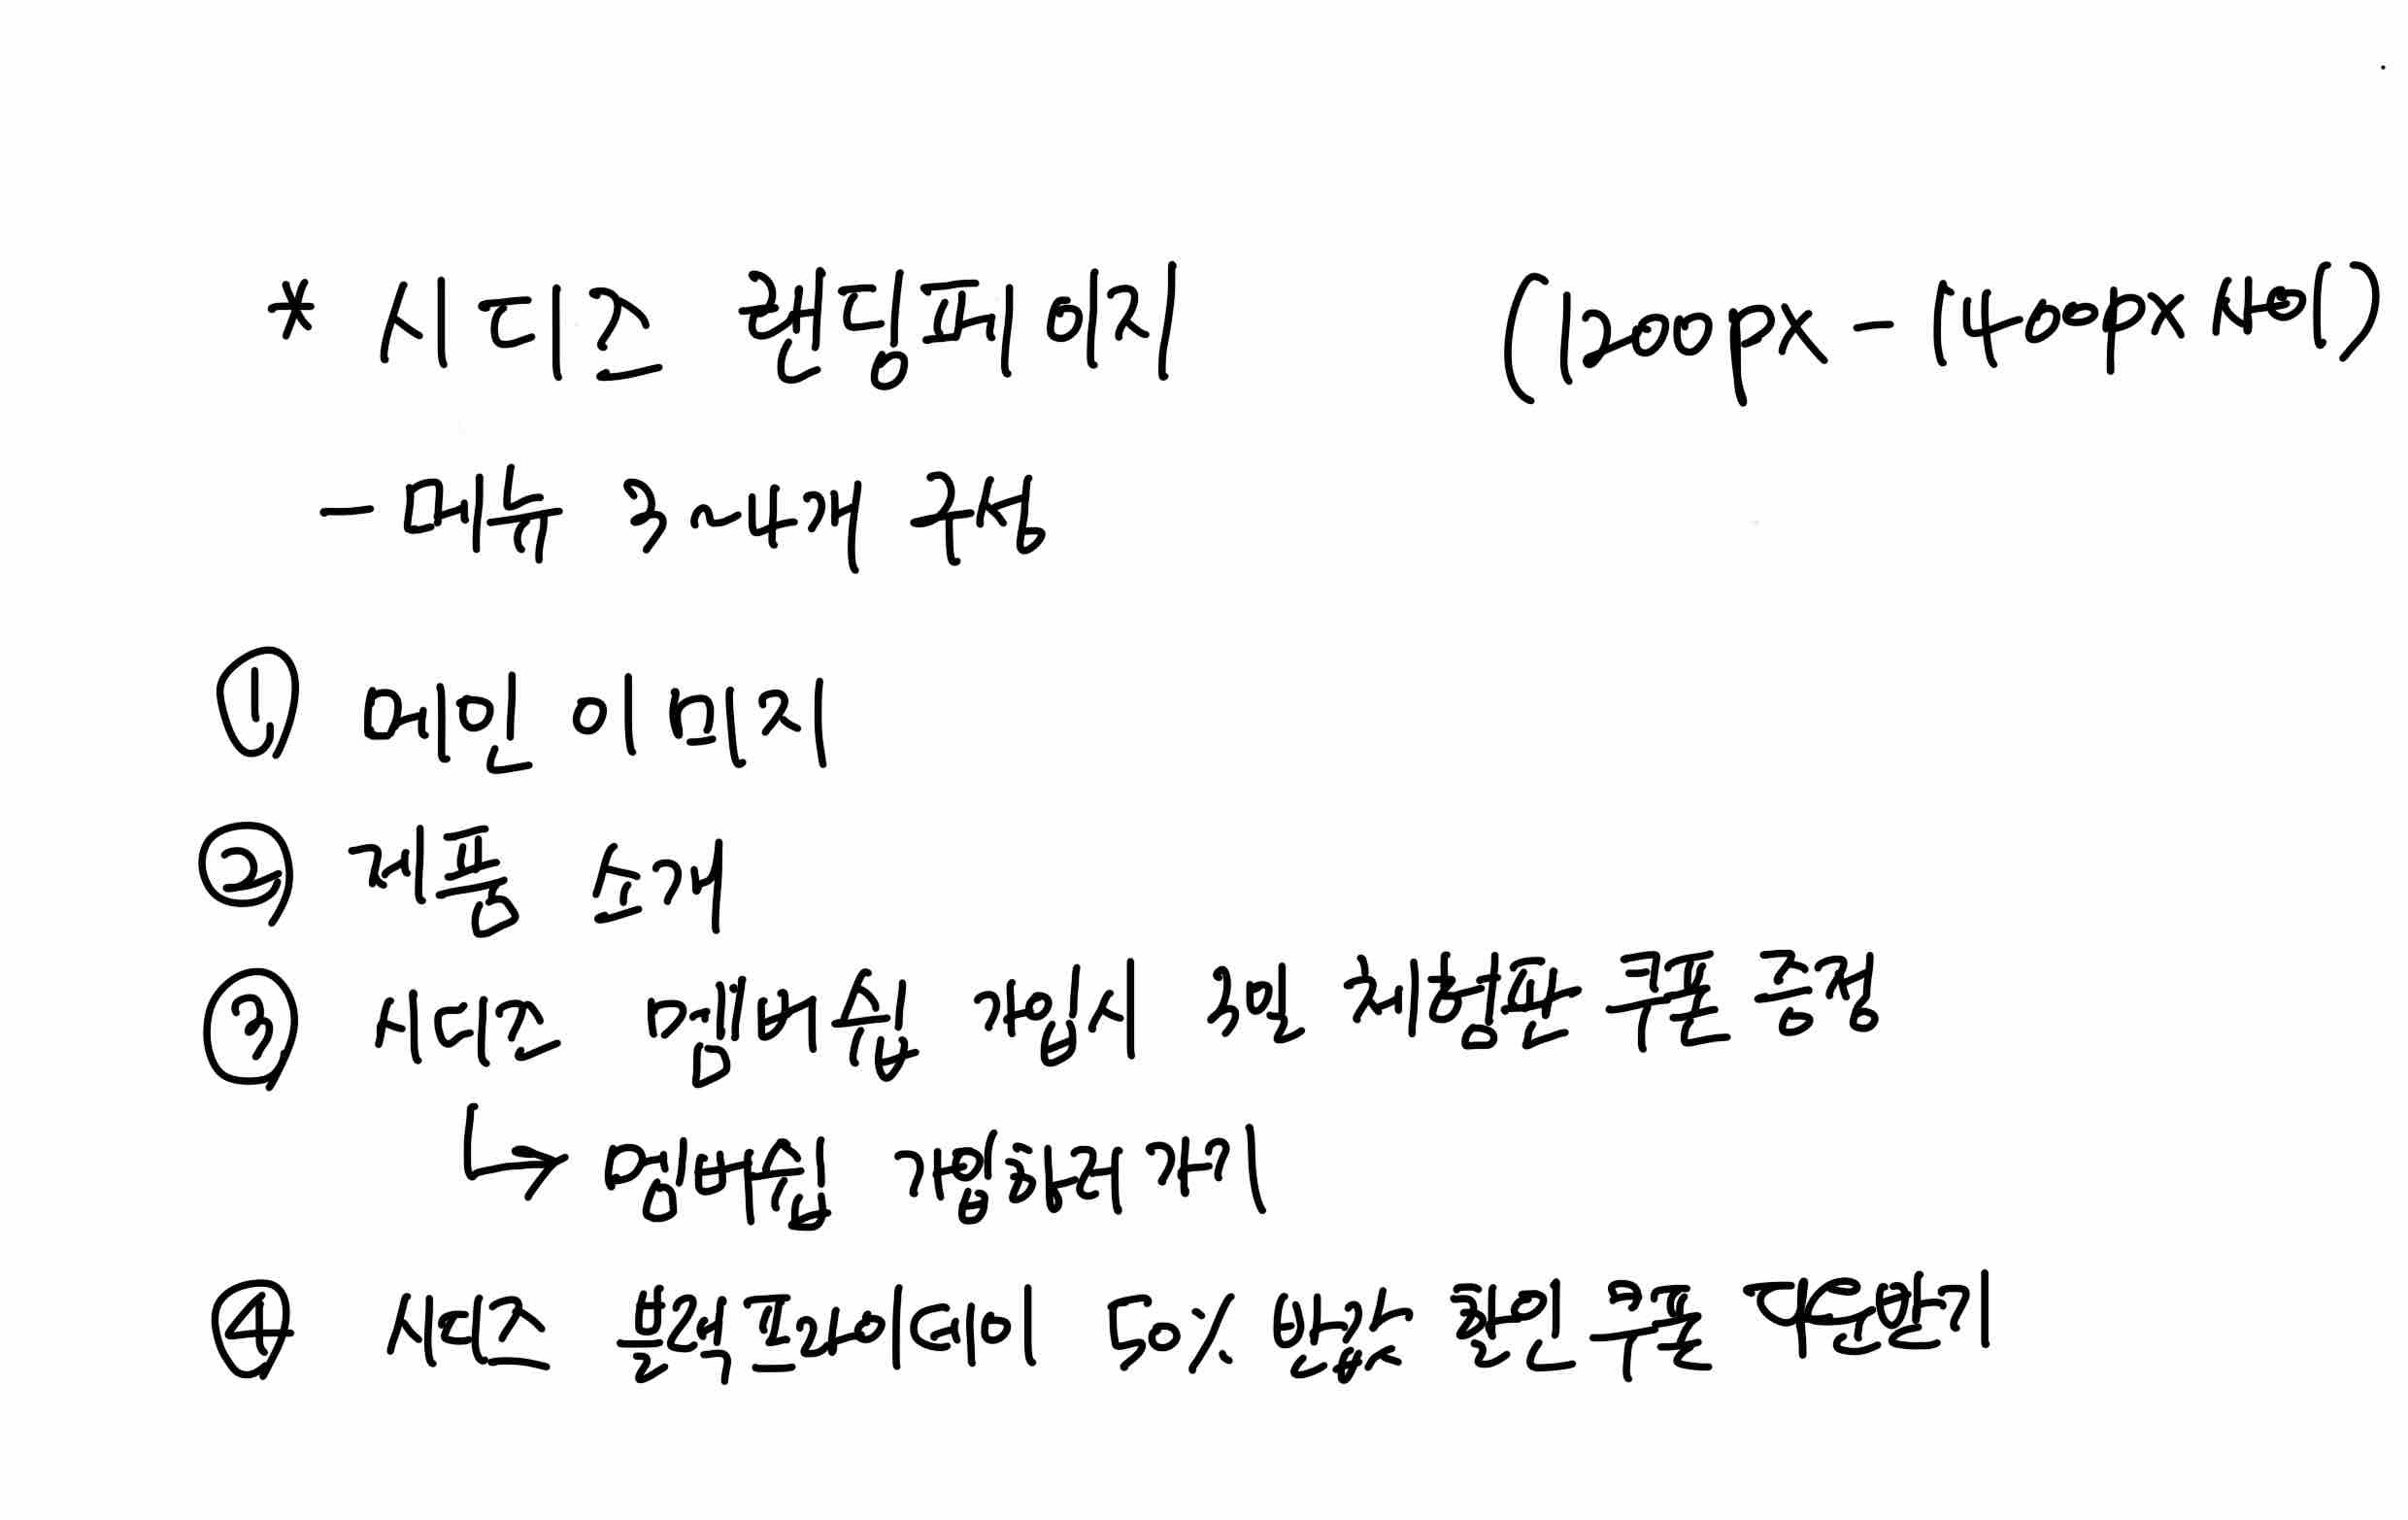 * 시디즈 랜딩페이지 (1200px - 1400px 사이)
- 메뉴 3~4개 구성
① 메인 이미지
② 제품 소개
③ 시디즈 멤버쉽 가입시 3일 체험판 쿠폰 증정
↳ 멤버쉽 가입하러 가기
④ 시디즈 블랙프라이데이 50% 반값 할인 쿠폰 다운받기